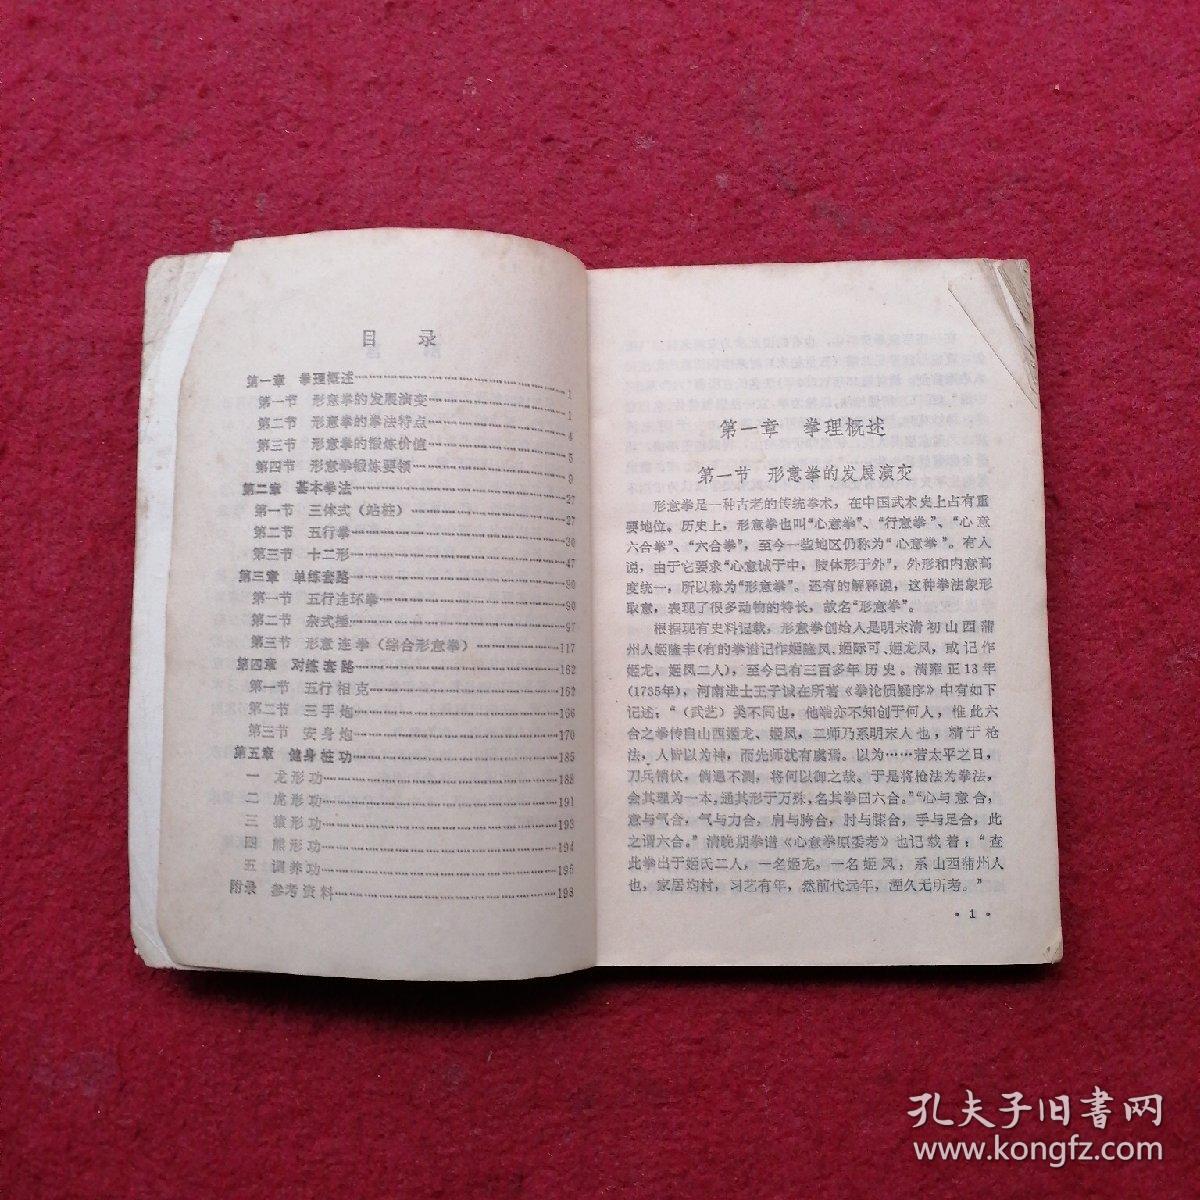 目录
第一章 拳理概述……1
第一节 形意拳的发展演变……1
第二节 形意拳的拳法特点……4
第三节 形意拳的锻炼价值……5
第四节 形意拳锻炼要领……9
第二章 基本拳法……27
第一节 三体式（站桩）……27
第二节 五行拳……30
第三节 十二形……47
第三章 单练套路……90
第一节 五行连环拳……90
第二节 杂式捶……97
第三节 形意连拳（综合形意拳）……117
第四章 对练套路……162
第一节 五行相克……162
第二节 三手炮……166
第三节 安身炮……170
第五章 健身桩功……185
一 龙形功……188
二 虎形功……191
三 猿形功……193
四 熊形功……194
五 调养功……195
附录 参考资料……198
第一章 拳理概述
第一节 形意拳的发展演变
形意拳是一种古老的传统拳术，在中国武术史上占有重
要地位。历史上，形意拳也叫“心意拳”、“行意拳”、“心意
六合拳”、“六合拳”，至今一些地区仍称为“心意拳”。有人
说，由于它要求“心意诚于中，肢体形于外”，外形和内意高
度统一，所以称为“形意拳”。还有的解释说，这种拳法象形
取意，表现了很多动物的特长，故名“形意拳”。
根据现有史料记载，形意拳创始人是明末清初山西蒲
州人姬隆丰（有的拳谱记作姬隆风、姬际可、姬龙风，或记作
姬龙、姬凤二人），至今已有三百多年历史。清雍正13年
（1735年），河南进士王子诚在所著《拳论质疑序》中有如下
记述：“（武艺）类不同也，他端亦不知创于何人，惟此六
合之拳传自山西姬龙、姬凤，二师乃系明末人也，精于枪
法，人皆以为神，而先师犹有虞焉。以为……若太平之日，
刀兵销伏，倘遇不测，将何以御之哉。于是将枪法为拳法，
会其理为一本，通其形于万殊，名其拳曰六合。”“心与意合，
意与气合，气与力合，肩与胯合，肘与膝合，手与足合，此
之谓六合。”清晚期拳谱《心意拳原委考》也记载着：“查
此拳出于姬氏二人，一名姬龙，一名姬凤；系山西蒲州人
也，家居均村，习艺有年，然前代远年，湮久无所考。”
• 1 •
孔夫子旧书网
www.kongfz.com